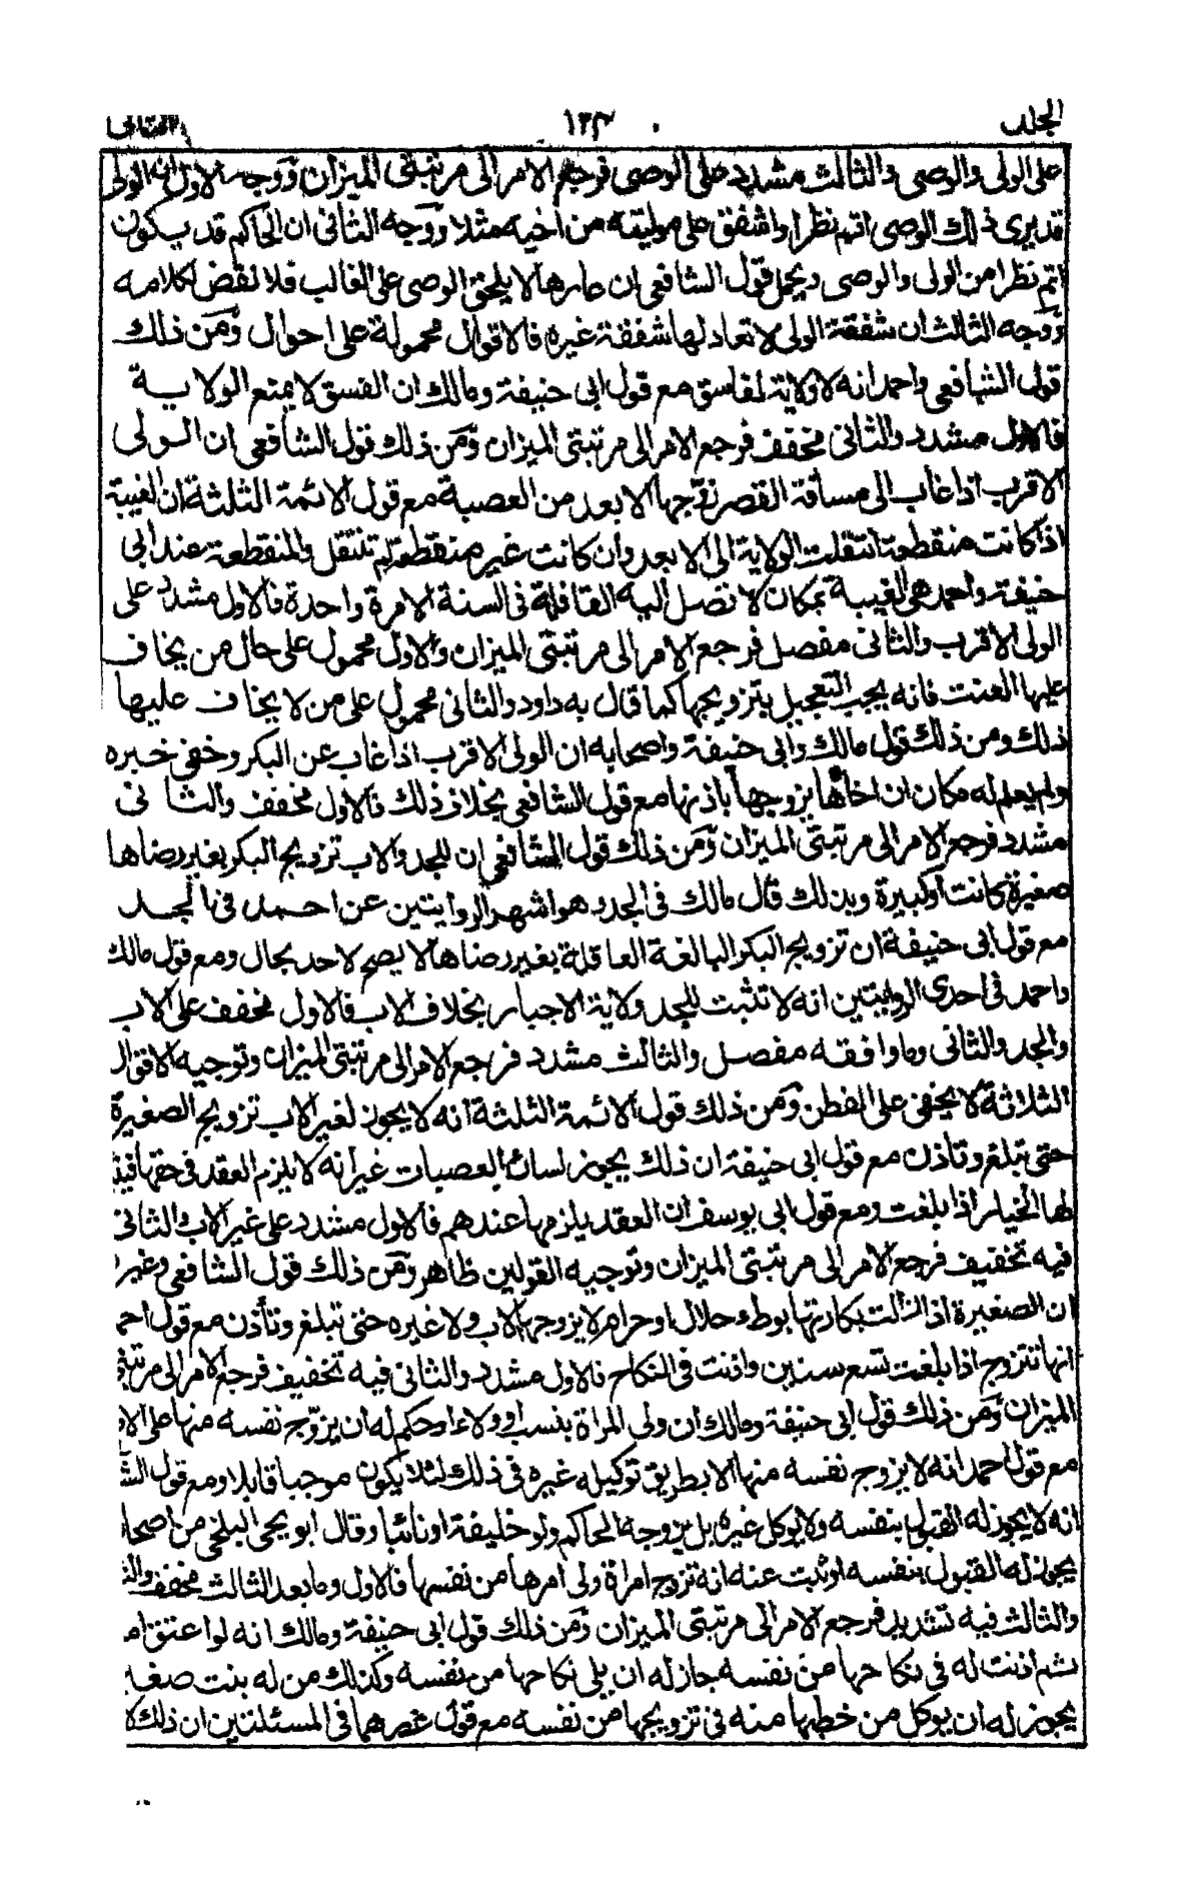 الجلد ١٢٣ الثانى
على الولى والوصى والثالث مشدد على الوصى فرجع الامر الى مرتبتى الميزان ووجه الاول ان الولى
قد يرى ذلك الوصى اتم نظرا واشفق على موليته من أخيه مثلا ووجه الثانى ان الحاكم قد يكون
اتم نظرا من الولى والوصى ويحمل قول الشافعى ان عارها لا يلحق الوصى على الغالب فلا نقض لكلامه
ووجه الثالث ان شفقة الولى لا تعادلها شفقة غيره فالاقوال محمولة على احوال ومن ذلك
قول الشافعى واحمد انه لا ولاية لفاسق مع قول ابى حنيفة ومالك ان الفسق لا يمنع الولاية
فالاول مشدد والثانى مخفف فرجع الامر الى مرتبتى الميزان ومن ذلك قول الشافعى ان الولى
الاقرب اذا غاب الى مسافة القصر زوّجها الابعد من العصبة مع قول الائمة الثلثة ان الغيبة
اذا كانت منقطعة انتقلت الولاية الى الابعد وان كانت غير منقطعة لم تنتقل والمنقطعة عند ابى
حنيفة واحمد هى الغيبة بمكان لا تصل اليه القافلة فى السنة الا مرة واحدة فالاول مشدد على
الولى الاقرب والثانى مفصل فرجع الامر الى مرتبتى الميزان والاول محمول على حال من يخاف
عليها العنت فانه يجب التعجيل بتزويجها كما قال به داود والثانى محمول على من لا يخاف عليها
ذلك ومن ذلك قول مالك وابى حنيفة واصحابه ان الولى الاقرب اذا غاب عن البكر وخفى خبره
ولم يعلم له مكان ان اخاها يزوجها باذنها مع قول الشافعى بخلاف ذلك فالاول مخفف والثانى
مشدد فرجع الامر الى مرتبتى الميزان ومن ذلك قول الشافعى ان للجد والاب تزويج البكر بغير رضاها
صغيرة كانت او كبيرة وبذلك قال مالك فى الجد وهو اشهر الروايتين عن احمد فى الجد
مع قول ابى حنيفة ان تزويج البكر البالغة العاقلة بغير رضاها لا يصح لاحد بحال ومع قول مالك
واحمد فى احدى الروايتين انه لا تثبت للجد ولاية الاجبار بخلاف الاب فالاول مخفف على الاب
والجد والثانى وما وافقه مفصل والثالث مشدد فرجع الامر الى مرتبتى الميزان وتوجيه الاقوال
الثلاثة لا يخفى على الفطن ومن ذلك قول الائمة الثلثة انه لا يجوز لغير الاب تزويج الصغيرة
حتى تبلغ وتاذن مع قول ابى حنيفة ان ذلك يجوز لسائر العصبات غير انه لا يلزم العقد فى حقها فيثبت
لها الخيار اذا بلغت ومع قول ابى يوسف ان العقد يلزمها عندهم فالاول مشدد على غير الاب والثانى
فيه تخفيف فرجع الامر الى مرتبتى الميزان وتوجيه القولين ظاهر ومن ذلك قول الشافعى وغيره
ان الصغيرة اذا زالت بكارتها بوطء حلال او حرام لا يزوجها الاب ولا غيره حتى تبلغ وتأذن مع قول احمد
انها تتزوج اذا بلغت تسع سنين واذنت فى النكاح فالاول مشدد والثانى فيه تخفيف فرجع الامر الى مرتبتى
الميزان ومن ذلك قول ابى حنيفة ومالك ان ولى المراة بنسب او ولاء او حكم له ان يزوّج نفسه منها على
مع قول احمد انه لا يزوج نفسه منها الا بطريق توكيله غيره فى ذلك لئلا يكون موجبا قابلا ومع قول
انه لا يجوز له القبول بنفسه ولا يوكل غيره بل يزوجه الحاكم ولو خليفة او نائبا وقال ابو يحيى البلخى من اصحا
يجوز له القبول بنفسه او ثبت عنه انه تزوج امراة ولى امرها من نفسها فالاول وما بعد الثالث مخفف
والثالث فيه تشديد فرجع الامر الى مرتبتى الميزان ومن ذلك قول ابى حنيفة ومالك انه لو اعتق ام
ثم اذنت له فى نكاحها من نفسه جاز له ان يلى نكاحها من نفسه وكذلك من له بنت صغير
يجوز له ان يوكل من خطبها منه فى تزويجها من نفسه مع قول غيرهما فى المسئلتين ان ذلك لا